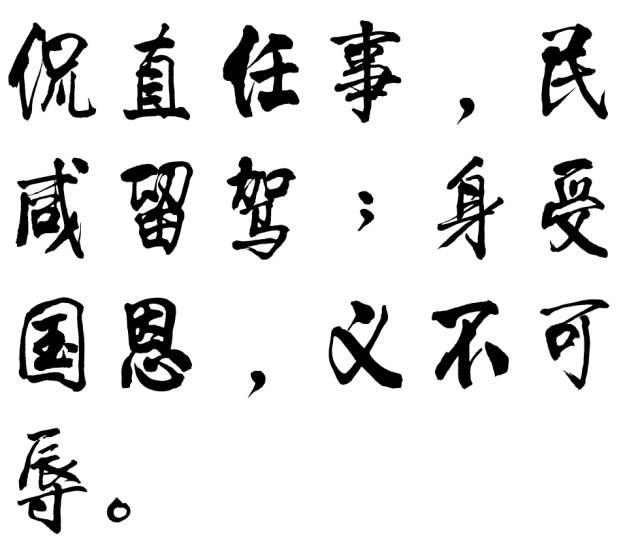 侃直任事，民
咸留驾；身受
国恩，义不可
辱。